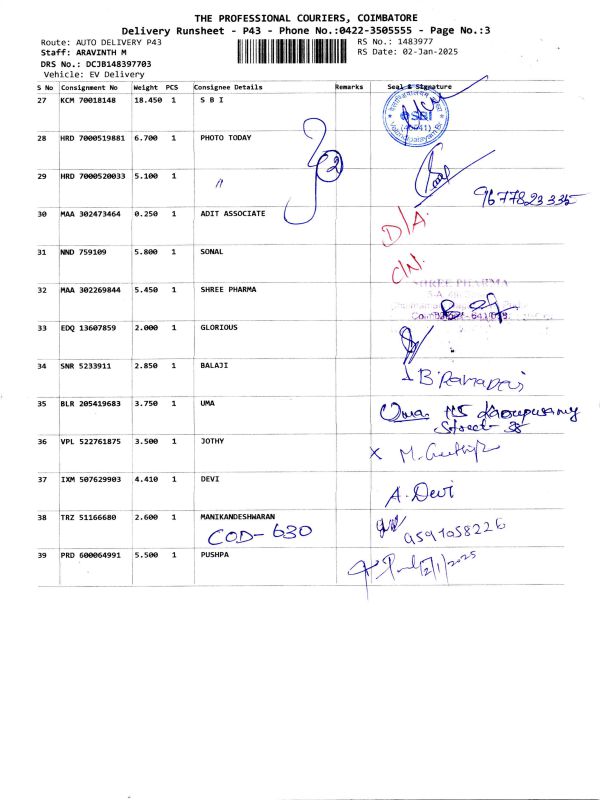 THE PROFESSIONAL COURIERS, COIMBATORE
Delivery Runsheet - P43 - Phone No.:0422-3505555 - Page No.:3
Route: AUTO DELIVERY P43 RS No.: 1483977
Staff: ARAVINTH M RS Date: 02-Jan-2025
DRS No.: DCJB148397703
Vehicle: EV Delivery
S No Consignment No Weight PCS Consignee Details Remarks Seal & Signature
27 KCM 70018148 18.450 1 S B I
SBI
28 HRD 7000519881 6.700 1 PHOTO TODAY
2
29 HRD 7000520033 5.100 1 〃
9677823335
30 MAA 302473464 0.250 1 ADIT ASSOCIATE D/A.
31 NND 759109 5.800 1 SONAL C/N.
32 MAA 302269844 5.450 1 SHREE PHARMA
SHREE PHARMA
33 EDQ 13607859 2.000 1 GLORIOUS
34 SNR 5233911 2.850 1 BALAJI
35 BLR 205419683 3.750 1 UMA Uma
Street - 38
36 VPL 522761875 3.500 1 JOTHY
37 IXM 507629903 4.410 1 DEVI A. Devi
38 TRZ 51166680 2.600 1 MANIKANDESHWARAN
COD- 630 9591058226
39 PRD 600064991 5.500 1 PUSHPA 2/1/2025